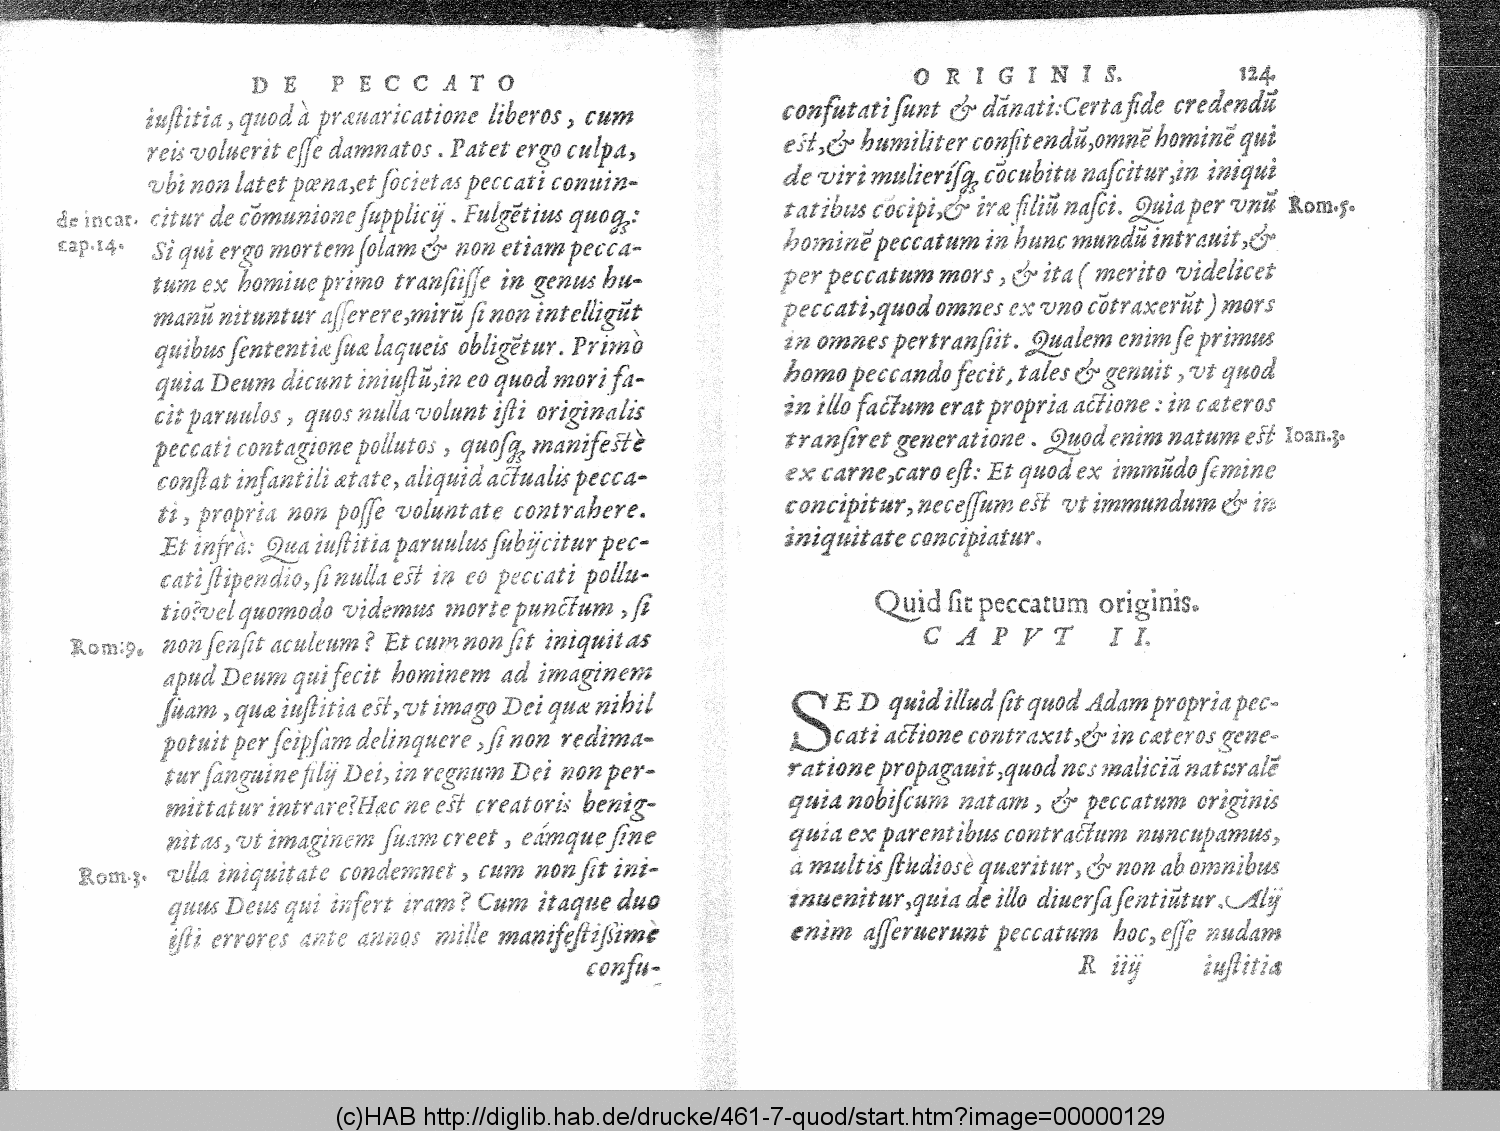 DE PECCATO
iuſtitia, quod à præuaricatione liberos, cum
reis voluerit eſſe damnatos. Patet ergo culpa,
vbi non latet pœna, et ſocietas peccati conuin-
de incar. citur de cõmunione ſupplicij. Fulgẽtius quoq;:
cap.14. Si qui ergo mortem ſolam & non etiam pecca-
tum ex homiue primo tranſiiſſe in genus hu-
manũ nituntur aſſerere, mirũ ſi non intelligũt
quibus ſententiæ ſuæ laqueis obligẽtur. Primò
quia Deum dicunt iniuſtũ, in eo quod mori fa-
cit paruulos, quos nulla volunt iſti originalis
peccati contagione pollutos, quoſq; manifeſtè
conſtat infantili ætate, aliquid actualis pecca-
ti, propria non poſſe voluntate contrahere.
Et infrà: Qua iuſtitia paruulus ſubijcitur pec-
cati ſtipendio, ſi nulla eſt in eo peccati pollu-
tio? vel quomodo videmus morte punctum, ſi
Rom:9. non ſenſit aculeum? Et cum non ſit iniquitas
apud Deum qui fecit hominem ad imaginem
ſuam, quæ iuſtitia eſt, vt imago Dei quæ nihil
potuit per ſeipſam delinquere, ſi non redima-
tur ſanguine filij Dei, in regnum Dei non per-
mittatur intrare? Hæc ne eſt creatoris benig-
nitas, vt imaginem ſuam creet, eámque ſine
Rom.3. vlla iniquitate condemnet, cum non ſit ini-
quus Deus qui infert iram? Cum itaque duo
iſti errores ante annos mille manifeſtiſſimè
confu-
ORIGINIS. 124
confutati ſunt & dãnati: Certa fide credendũ
eſt, & humiliter confitendũ, omnẽ hominẽ qui
de viri mulieriſq; cõcubitu naſcitur, in iniqui
tatibus cõcipi, & iræ filiũ naſci. Quia per vnũ Rom.5.
hominẽ peccatum in hunc mundũ intrauit, &
per peccatum mors, & ita ( merito videlicet
peccati, quod omnes ex vno cõtraxerũt ) mors
in omnes pertranſiit. Qualem enim ſe primus
homo peccando fecit, tales & genuit, vt quod
in illo factum erat propria actione: in cæteros
tranſiret generatione. Quod enim natum eſt Ioan.3.
ex carne, caro eſt: Et quod ex immũdo ſemine
concipitur, neceſſum eſt vt immundum & in
iniquitate concipiatur.
Quid ſit peccatum originis.
CAPVT II.
SED quid illud ſit quod Adam propria pec-
cati actione contraxit, & in cæteros gene-
ratione propagauit, quod nos maliciã naturalẽ
quia nobiſcum natam, & peccatum originis
quia ex parentibus contractum nuncupamus,
a multis ſtudiosè quæritur, & non ab omnibus
inuenitur, quia de illo diuerſa ſentiũtur. Alij
enim aſſeruerunt peccatum hoc, eſſe nudam
R iiij iuſtitiæ
(c)HAB http://diglib.hab.de/drucke/461-7-quod/start.htm?image=00000129